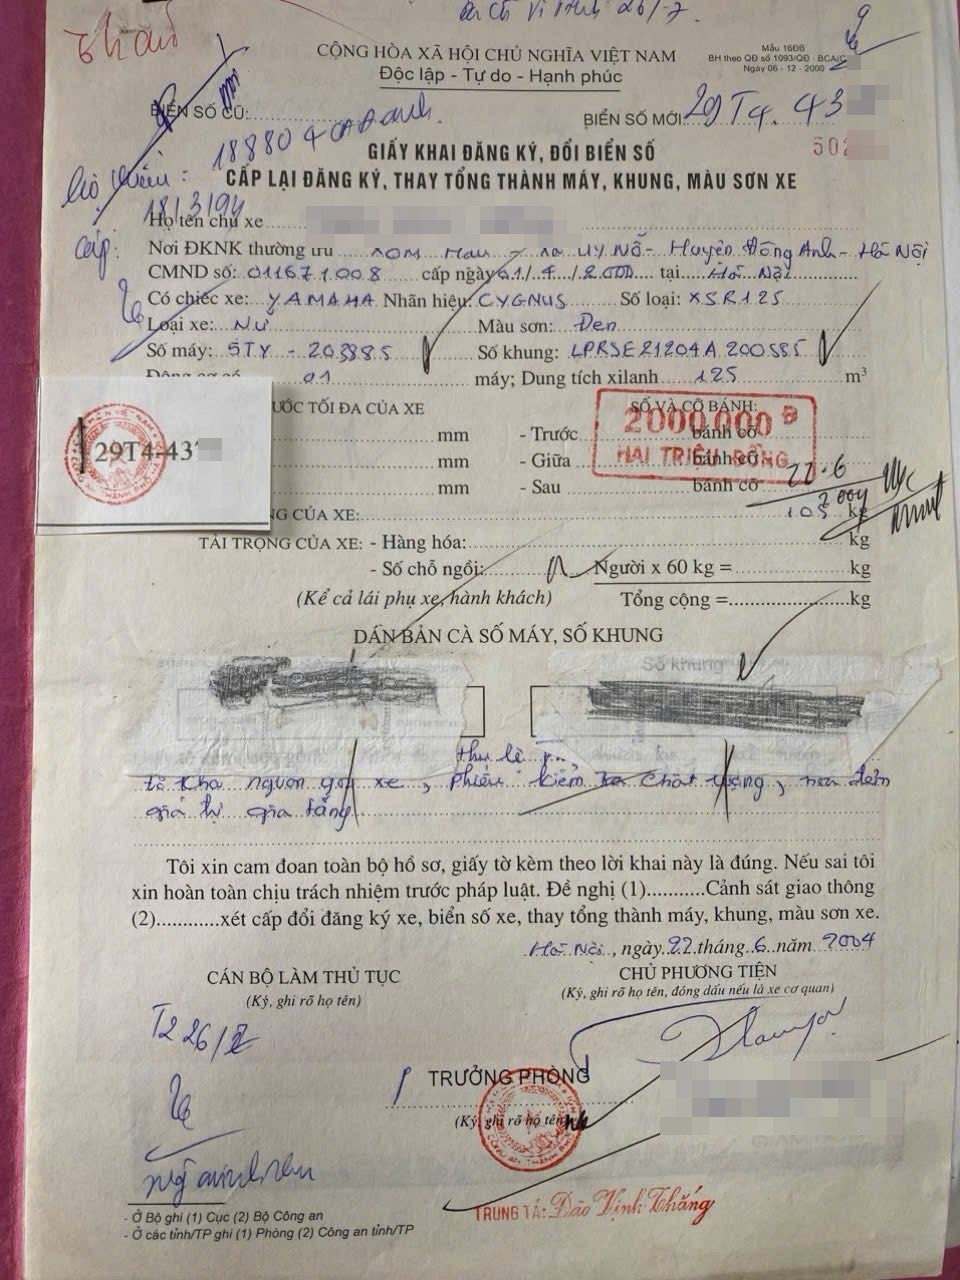 CỘNG HÒA XÃ HỘI CHỦ NGHĨA VIỆT NAM
Độc lập - Tự do - Hạnh phúc
Mẫu 16ĐB
BH theo QĐ số 1093/QĐ - BCA/C
Ngày 06 - 12 - 2000
BIỂN SỐ CŨ:
BIỂN SỐ MỚI: 29T4. 43
18880
502
GIẤY KHAI ĐĂNG KÝ, ĐỔI BIỂN SỐ
CẤP LẠI ĐĂNG KÝ, THAY TỔNG THÀNH MÁY, KHUNG, MÀU SƠN XE
18/3/94
Họ tên chủ xe
Nơi ĐKNK thường trú Uy Nỗ - Huyện Đông Anh - Hà Nội
CMND số: 011671008 cấp ngày 61/4/2000 tại Hà Nội
Có chiếc xe: YAMAHA Nhãn hiệu: CYGNUS Số loại: XSR125
Loại xe: Nữ Màu sơn: Đen
Số máy: 5TY - 203885 Số khung: LPRSE21204A200585
01 máy; Dung tích xilanh 125 m³
29T4-43
ƯỚC TỐI ĐA CỦA XE
SỐ VÀ CỠ BÁNH:
2000.000 Đ
HAI TRIỆU ĐỒNG
mm - Trước bánh cỡ
mm - Giữa bánh cỡ
mm - Sau bánh cỡ
22.6
2004
NG CỦA XE: 105 kg
TẢI TRỌNG CỦA XE: - Hàng hóa: kg
- Số chỗ ngồi: Người x 60 kg = kg
(Kể cả lái phụ xe, hành khách) Tổng cộng = kg
DÁN BẢN CÀ SỐ MÁY, SỐ KHUNG
Số khung
xe, phiếu kiểm tra chất lượng, hóa đơn
giá trị gia tăng
Tôi xin cam đoan toàn bộ hồ sơ, giấy tờ kèm theo lời khai này là đúng. Nếu sai tôi
xin hoàn toàn chịu trách nhiệm trước pháp luật. Đề nghị (1)...........Cảnh sát giao thông
(2)............xét cấp đổi đăng ký xe, biển số xe, thay tổng thành máy, khung, màu sơn xe.
Hà Nội, ngày 22 tháng 6 năm 2004
CÁN BỘ LÀM THỦ TỤC
(Ký, ghi rõ họ tên)
CHỦ PHƯƠNG TIỆN
(Ký, ghi rõ họ tên, đóng dấu nếu là xe cơ quan)
T2 26/
TRƯỞNG PHÒNG
(Ký, ghi rõ họ tên)
TRUNG TÁ: Đào Vịnh Thắng
- Ở Bộ ghi (1) Cục (2) Bộ Công an
- Ở các tỉnh/TP ghi (1) Phòng (2) Công an tỉnh/TP